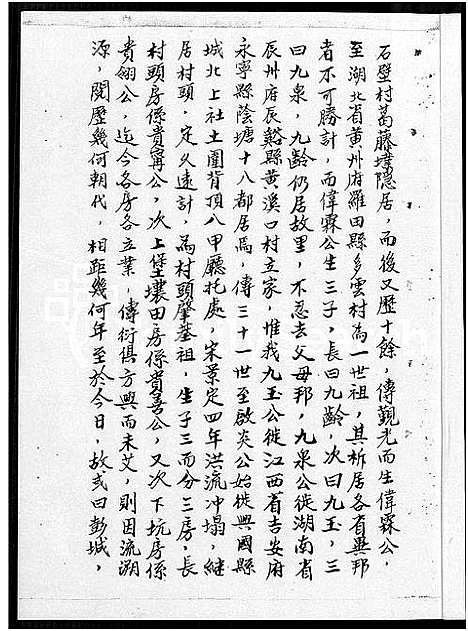 石壁村葛藤墩隱居，而後又歷十餘，傳觀光而生偉霖公，
至湖北省黃州府羅田縣多雲村為一世祖，其析居各省異邦
者不可勝計，而偉霖公生三子，長曰九齡，次曰九玉，三
曰九泉，九齡仍居故里，不忍去父母邦，九泉公徙湖南省
辰州府辰谿縣黃溪口村立家，惟我九玉公徙江西省吉安府
永寧縣蔭塘十八都居焉，傳三十一世至啟炎公始徙興國縣
城北上社土圍背頂八甲廳托處，宋景定四年洪流冲塌，継
居村頭，定久遠計，為村頭肇基祖，生子三而分三房，長
村頭房係貴寗公，次上堡壤田房係貴善公，又次下坑房係
貴翎公，迄今各房各立業，傳衍俱方興而未艾，則因流溯
源，閱歷幾何朝代，相距幾何年至於今日，故或曰彭城，